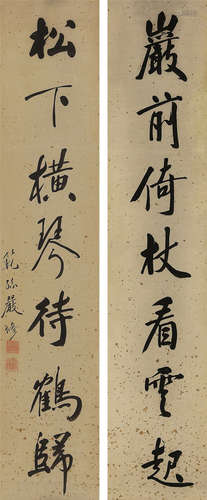 巖前倚杖看雲起
松下橫琴待鶴歸
範孫嚴修